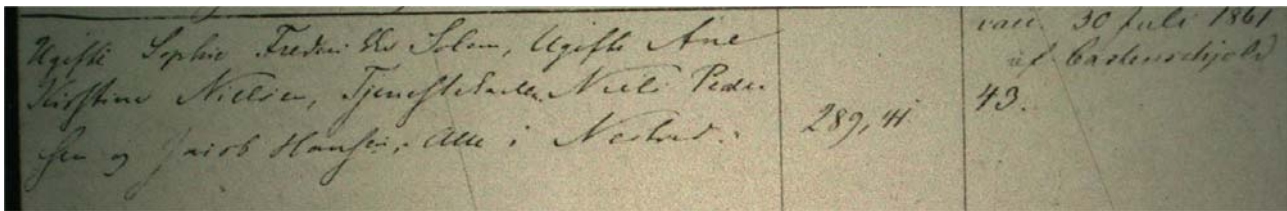 Ugifte Sophie Frederikke Solem, Ugifte Ane
Kirstine Nielsen, Tjenestekarlen Niels Peder
sen og Jacob Hansen, Alle i
289, 41.
30 Juli 1861
af Castenschjold
43.